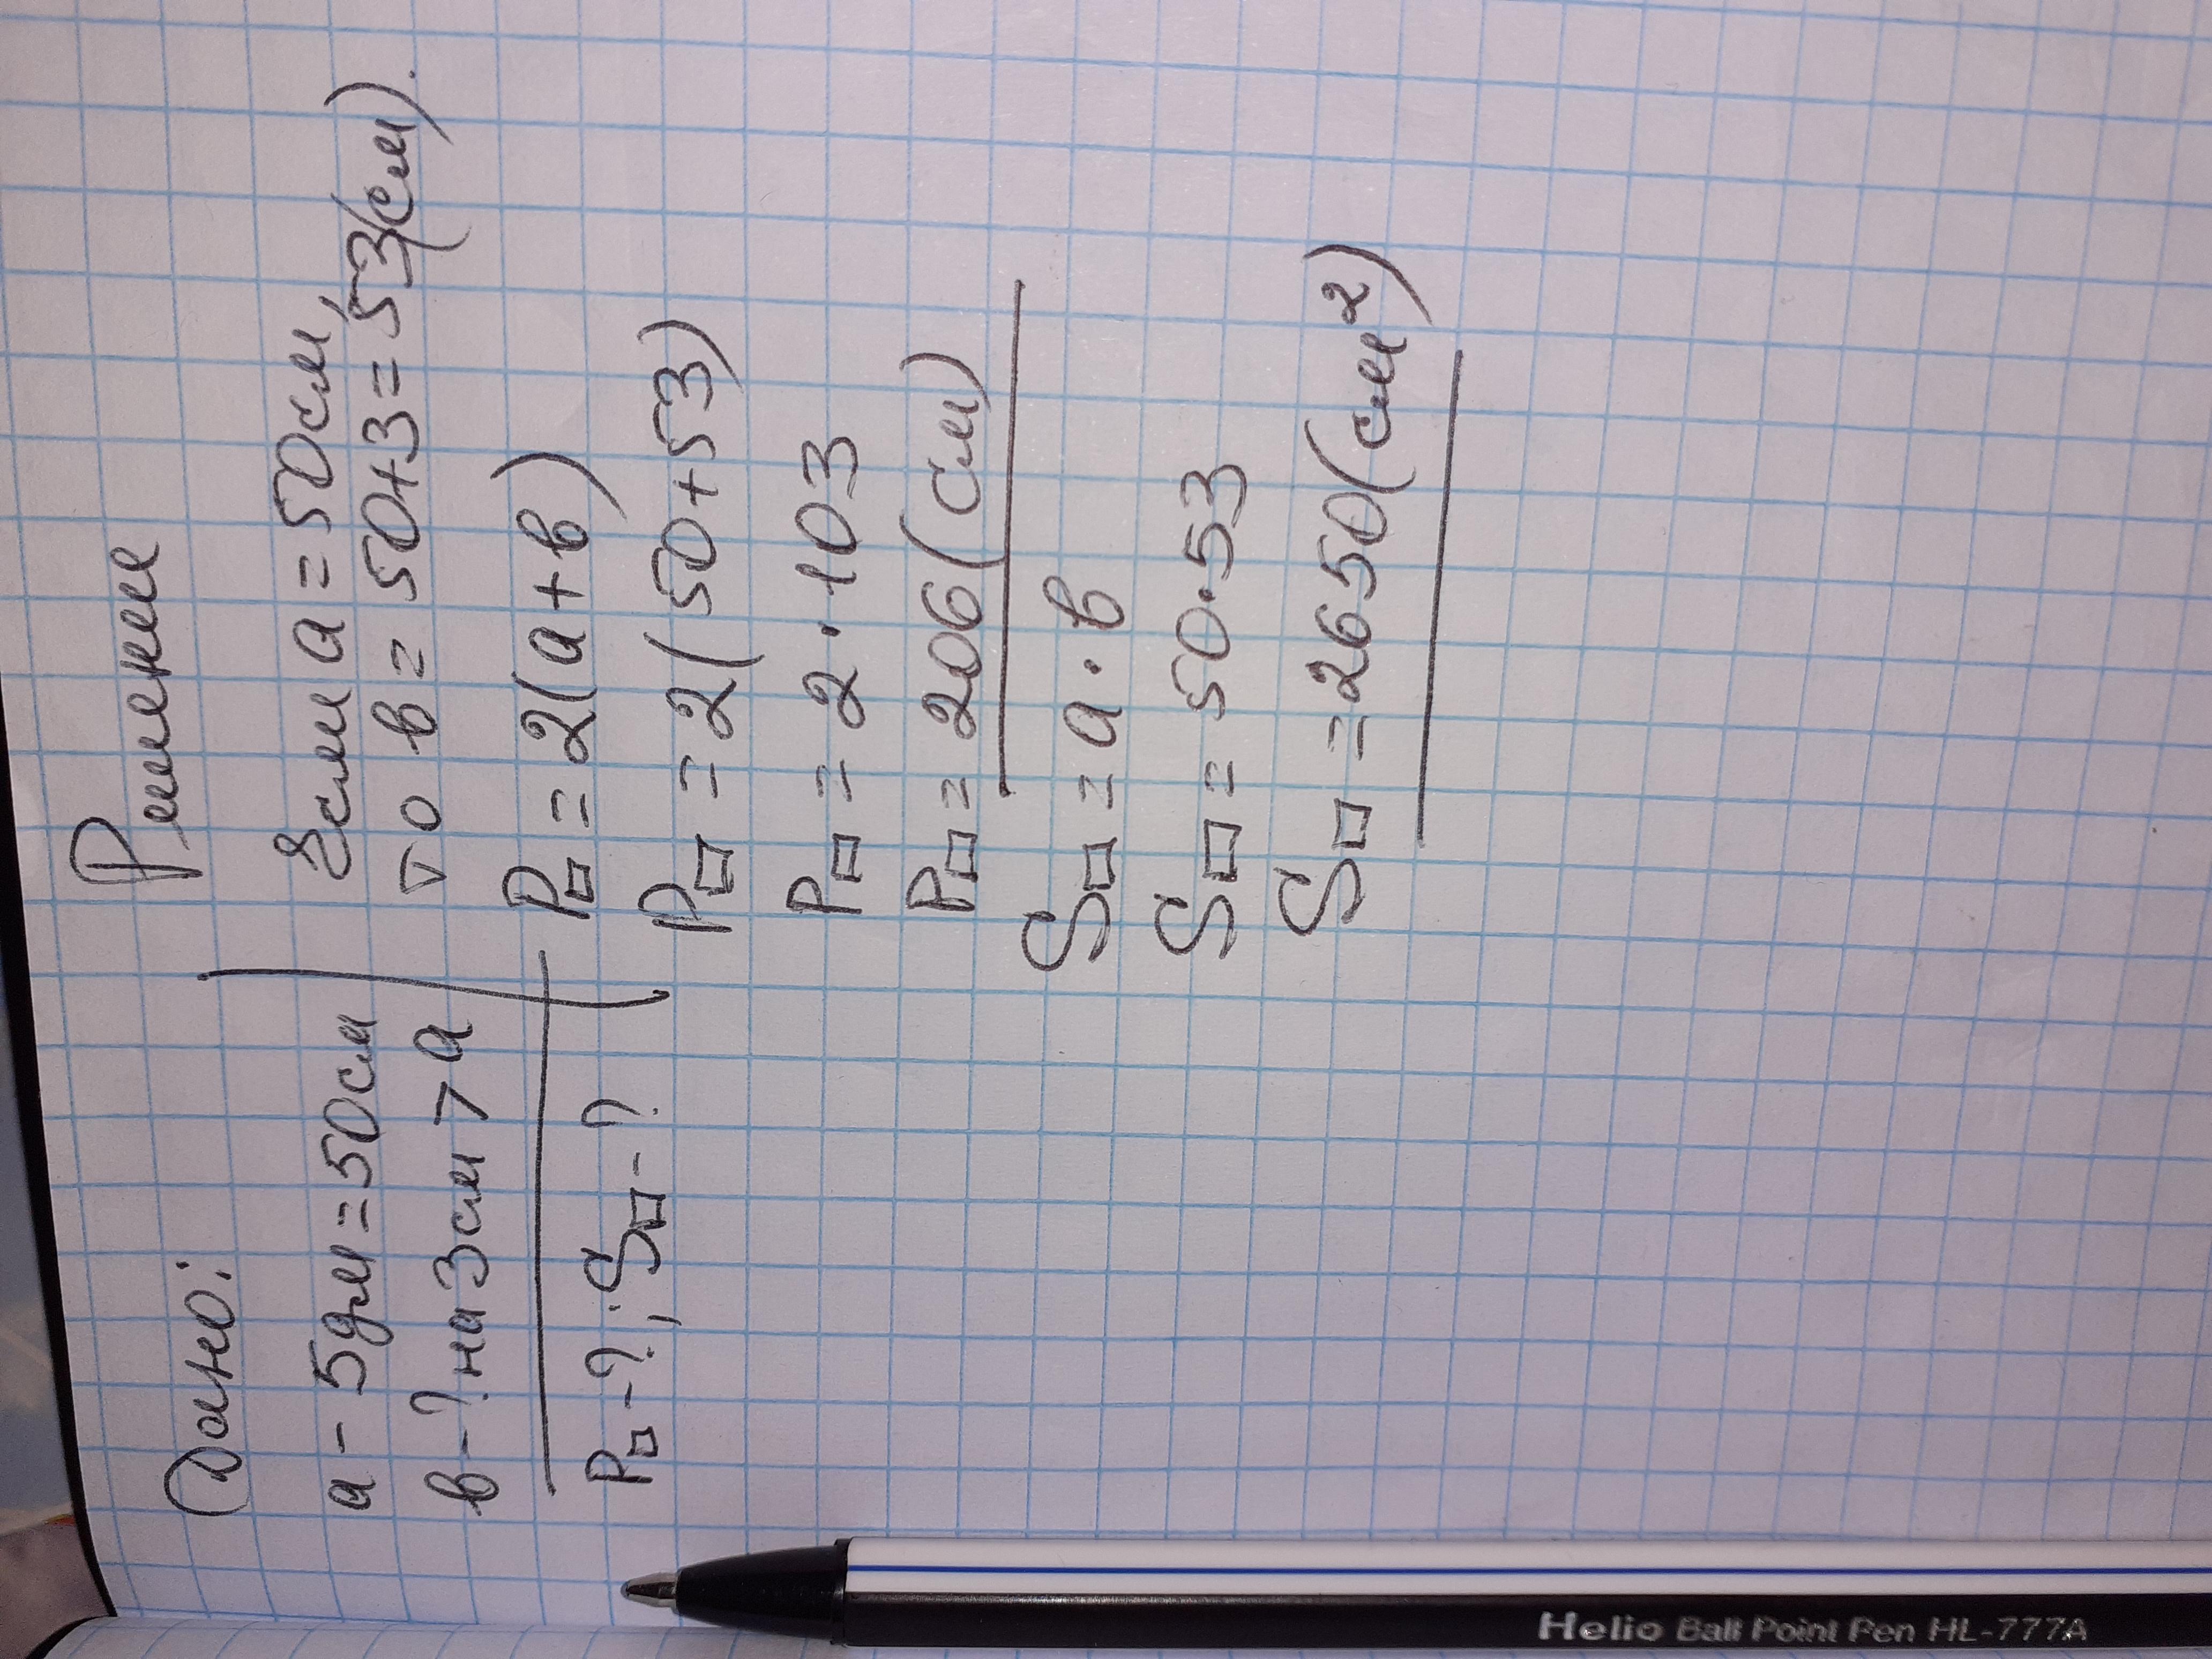 Дано:
а - 5дм = 50см
в - ? на 3см > а
P□ - ?; S□ - ?
Решение
Если а = 50см,
то в = 50+3 = 53(см).
P□ = 2(а+в)
P□ = 2(50+53)
P□ = 2·103
P□ = 206(см)
S□ = а·в
S□ = 50·53
S□ = 2650(см²)
Helio Ball Point Pen HL-777A